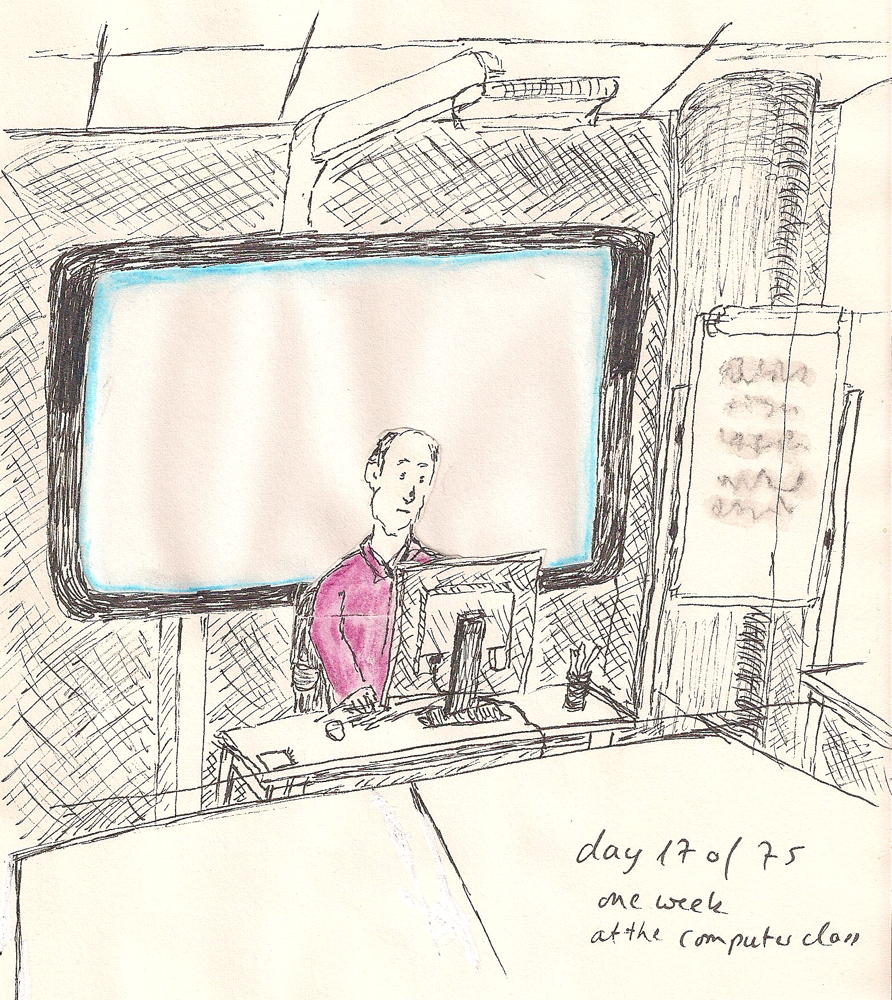 day 17 of 75
one week
at the computer class